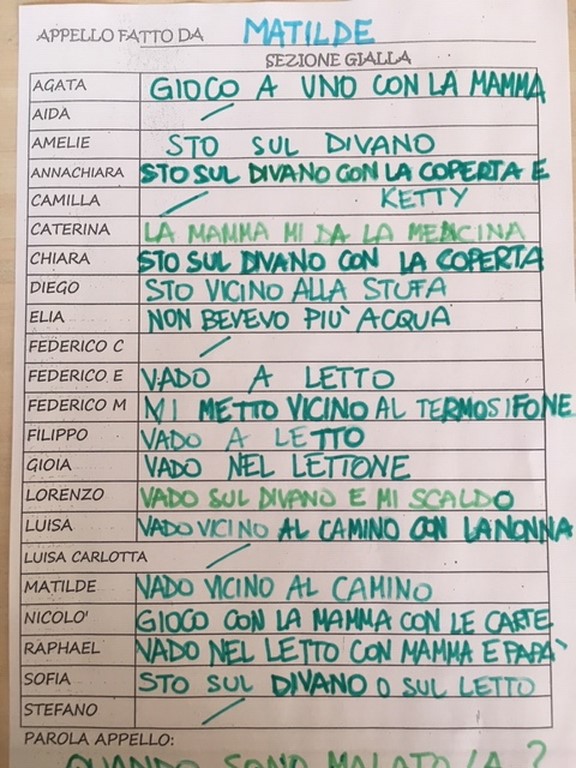 APPELLO FATTO DA MATILDE
SEZIONE GIALLA
AGATA GIOCO A UNO CON LA MAMMA
AIDA /
AMELIE STO SUL DIVANO
ANNACHIARA STO SUL DIVANO CON LA COPERTA E
CAMILLA / KETTY
CATERINA LA MAMMA MI DA LA MEDICINA
CHIARA STO SUL DIVANO CON LA COPERTA
DIEGO STO VICINO ALLA STUFA
ELIA NON BEVEVO PIU' ACQUA
FEDERICO C /
FEDERICO E VADO A LETTO
FEDERICO M MI METTO VICINO AL TERMOSIFONE
FILIPPO VADO A LETTO
GIOIA VADO NEL LETTONE
LORENZO VADO SUL DIVANO E MI SCALDO
LUISA VADO VICINO AL CAMINO CON LA NONNA
LUISA CARLOTTA /
MATILDE VADO VICINO AL CAMINO
NICOLO' GIOCO CON LA MAMMA CON LE CARTE
RAPHAEL VADO NEL LETTO CON MAMMA E PAPA'
SOFIA STO SUL DIVANO O SUL LETTO
STEFANO /
PAROLA APPELLO:
QUANDO SONO MALATO/A ?